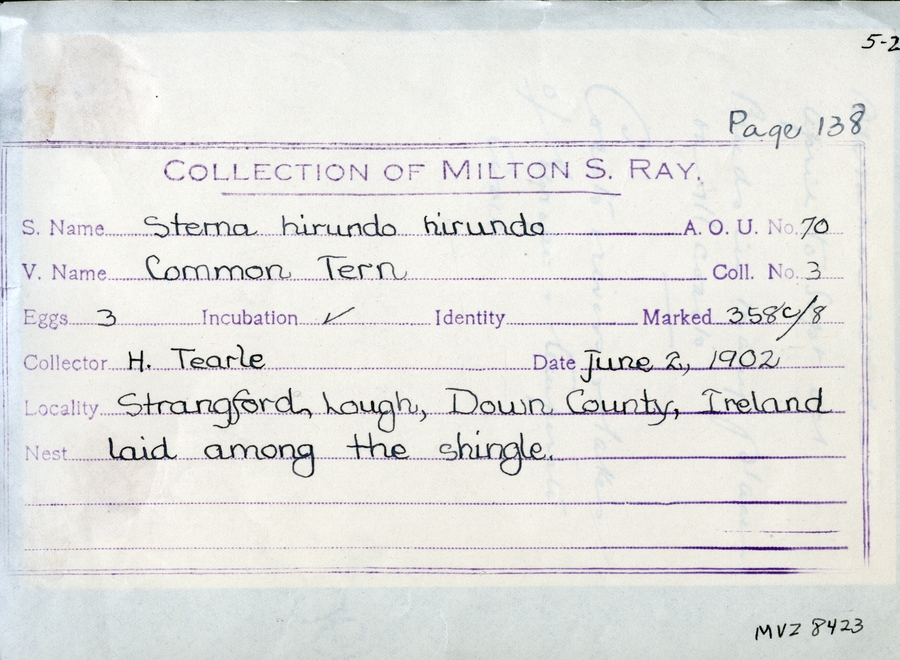 5-2
Page 138
COLLECTION OF MILTON S. RAY.
S. Name Sterna hirundo hirundo A. O. U. No. 70
V. Name Common Tern Coll. No. 3
Eggs 3 Incubation ✓ Identity Marked 358c/8
Collector H. Tearle Date June 2, 1902
Locality Strangford, Lough, Down County, Ireland
Nest laid among the shingle.
MVZ 8423